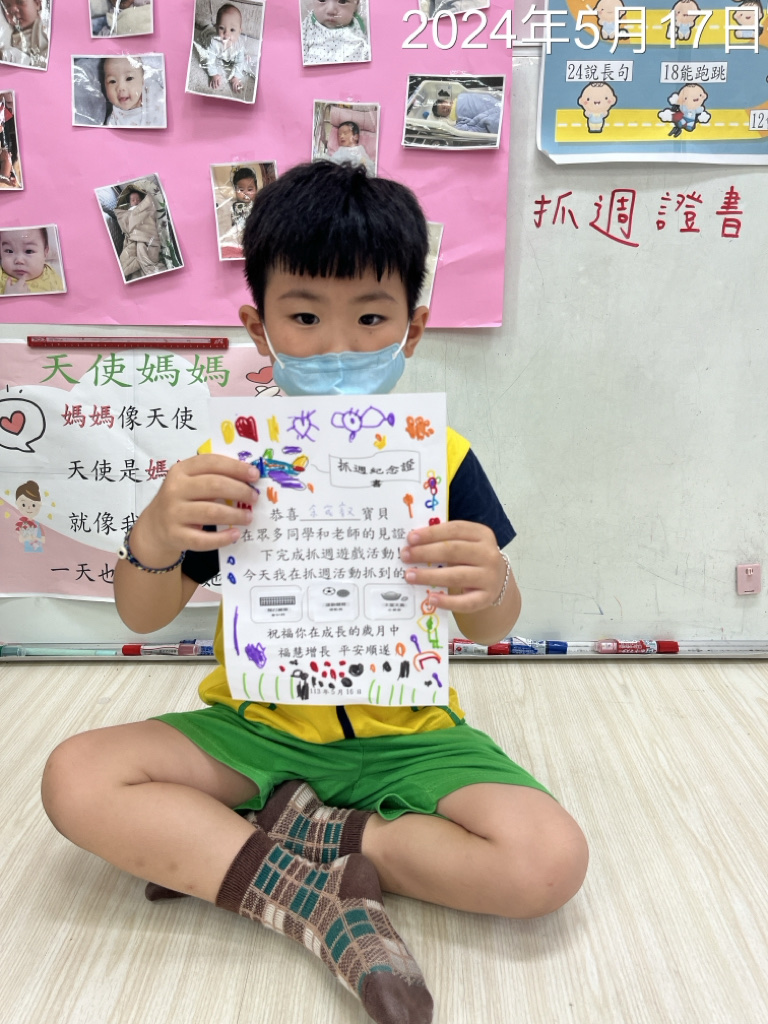 2024年5月17日
24說長句
18能跑跳
12
抓週證書
天使媽媽
媽媽像天使
天使是媽
就像我
一天也
抓週紀念證
書
恭喜 寶貝
在眾多同學和老師的見證
下完成抓週遊戲活動!
今天我在抓週活動抓到的
祝福你在成長的歲月中
福慧增長 平安順遂
113年5月16日